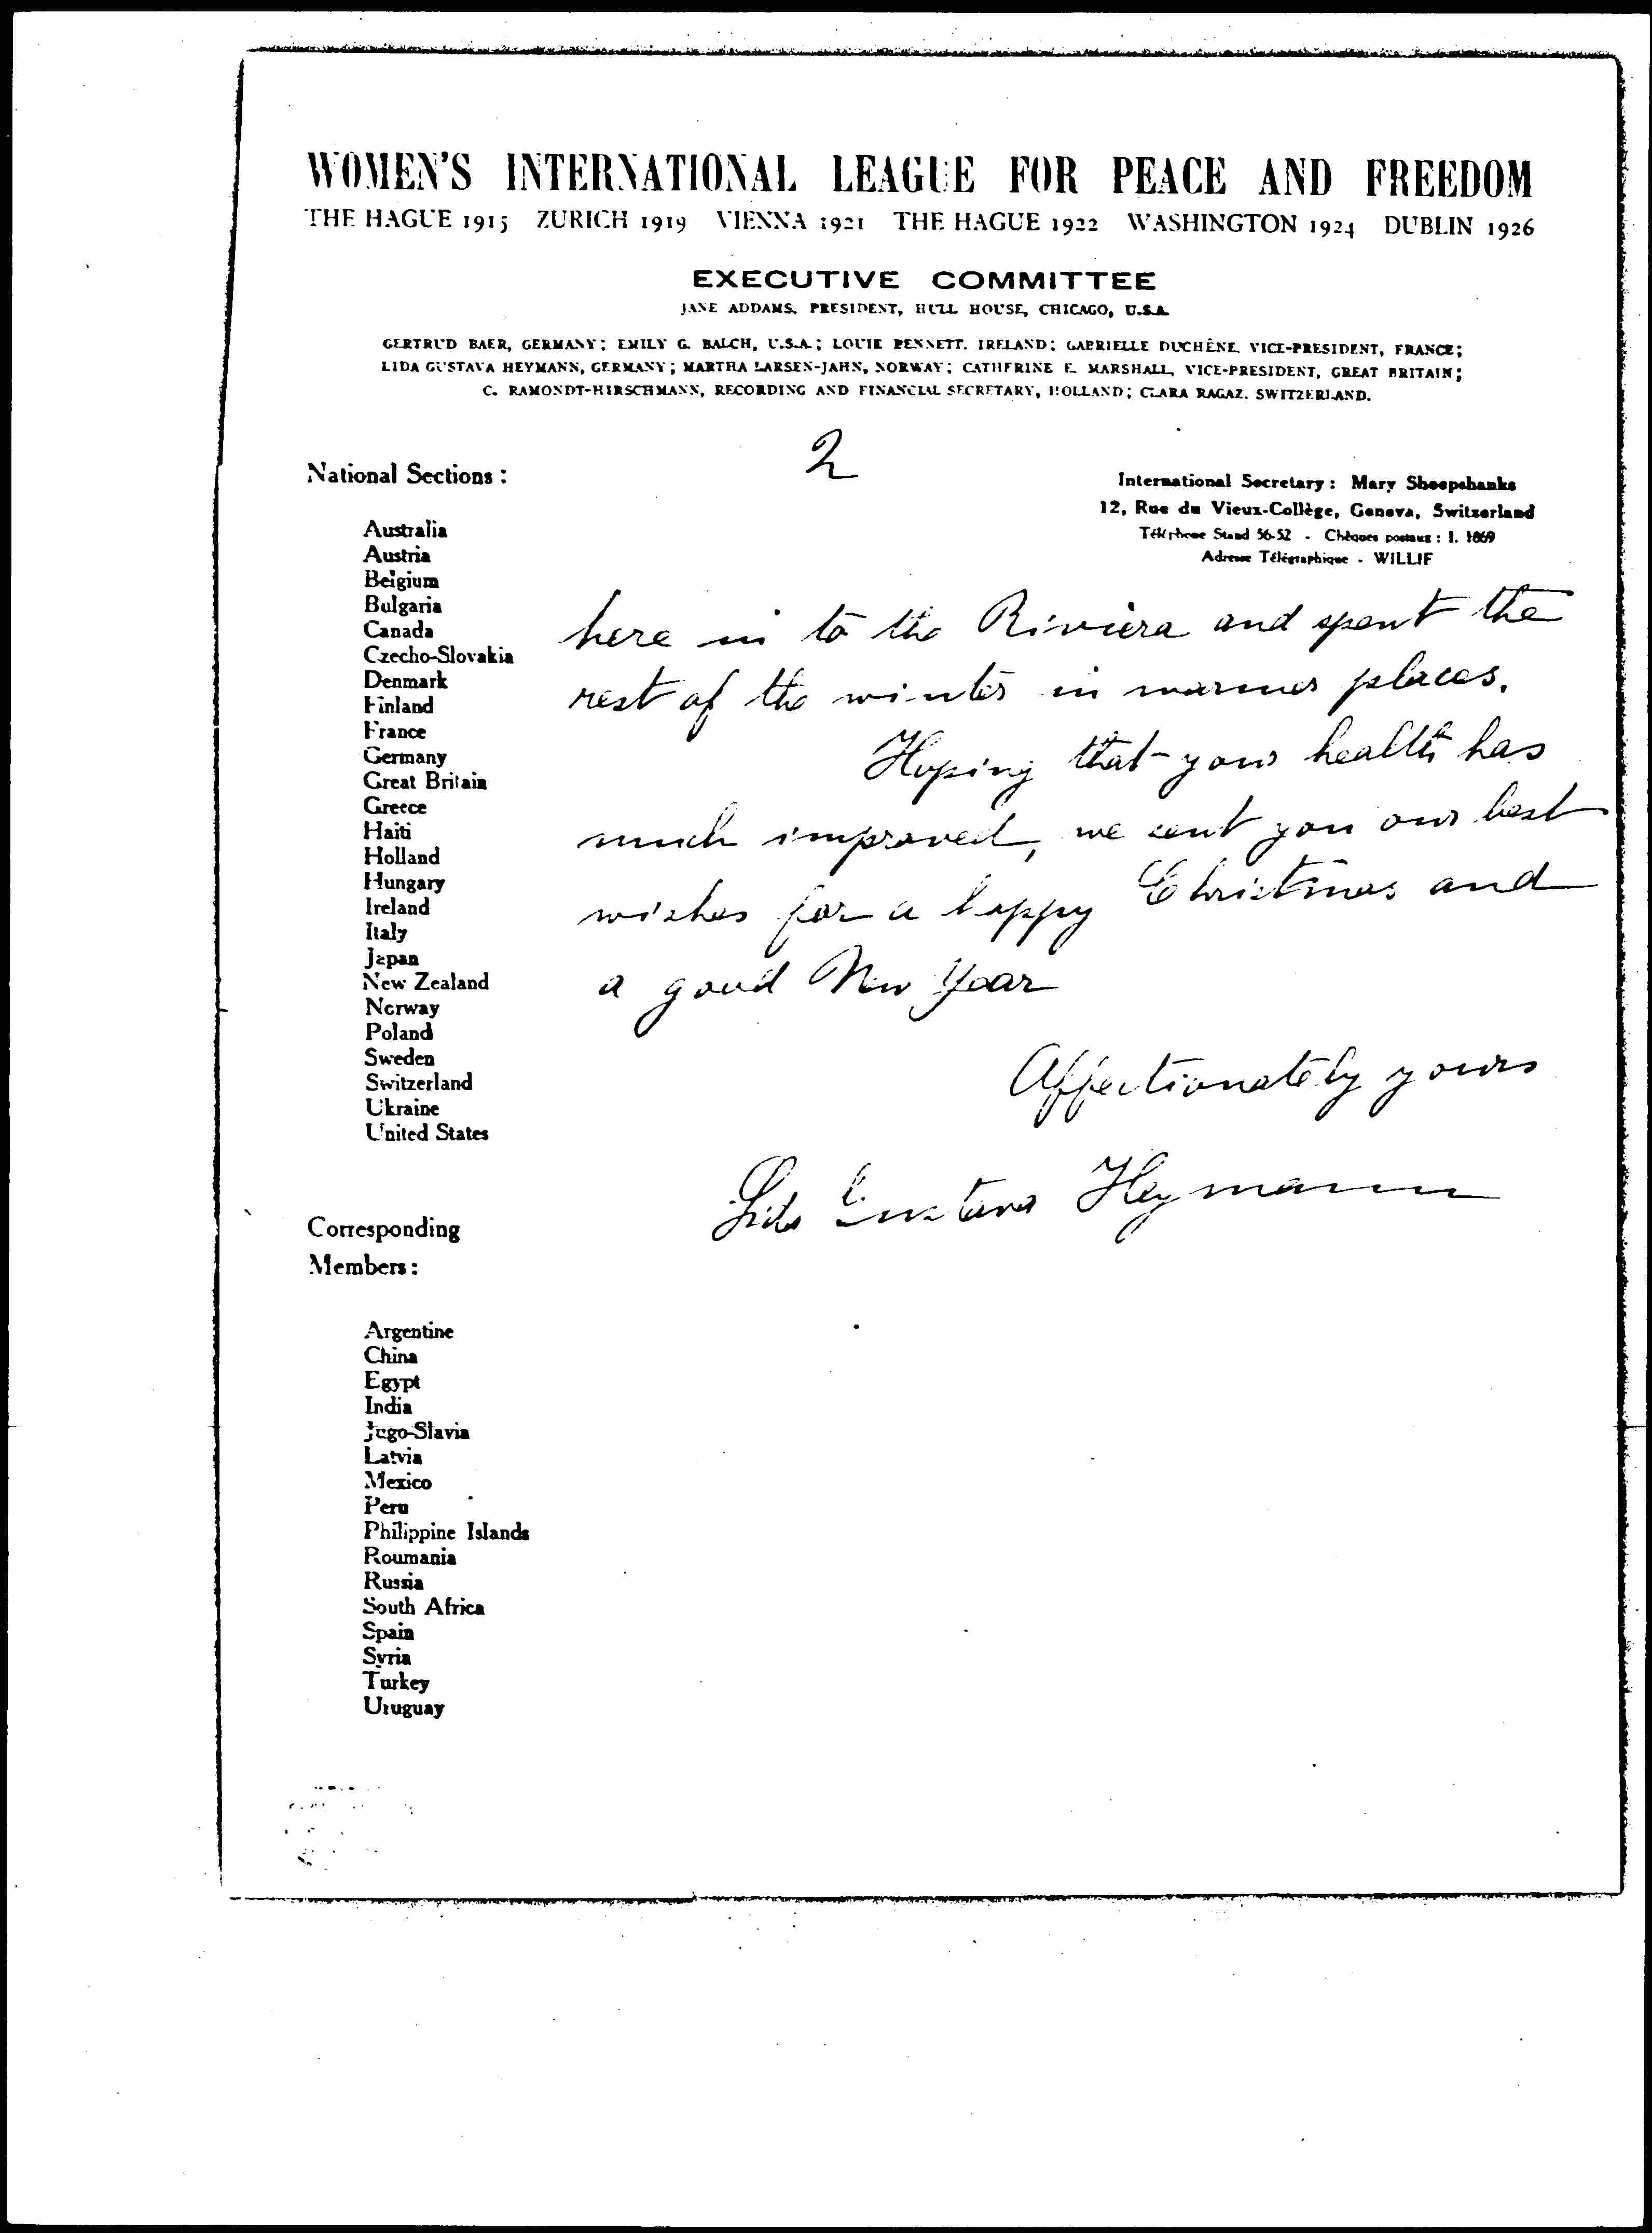 WOMEN'S INTERNATIONAL LEAGUE FOR PEACE AND FREEDOM
THE HAGUE 1915 ZURICH 1919 VIENNA 1921 THE HAGUE 1922 WASHINGTON 1924 DUBLIN 1926
EXECUTIVE COMMITTEE
JANE ADDAMS, PRESIDENT, HULL HOUSE, CHICAGO, U.S.A.
GERTRUD BAER, GERMANY; EMILY G. BALCH, U.S.A.; LOUIE BENNETT. IRELAND; GABRIELLE DUCHÊNE. VICE-PRESIDENT, FRANCE;
LIDA GUSTAVA HEYMANN, GERMANY; MARTHA LARSEN-JAHN, NORWAY; CATHERINE E. MARSHALL, VICE-PRESIDENT, GREAT BRITAIN;
C. RAMONDT-HIRSCHMANN, RECORDING AND FINANCIAL SECRETARY, HOLLAND; CLARA RAGAZ. SWITZERLAND.
2
National Sections:
Australia
Austria
Belgium
Bulgaria
Canada
Czecho-Slovakia
Denmark
Finland
France
Germany
Great Britain
Greece
Haiti
Holland
Hungary
Ireland
Italy
Japan
New Zealand
Norway
Poland
Sweden
Switzerland
Ukraine
United States
Corresponding
Members:
Argentine
China
Egypt
India
Jugo-Slavia
Latvia
Mexico
Peru
Philippine Islands
Roumania
Russia
South Africa
Spain
Syria
Turkey
Uruguay
International Secretary: Mary Sheepshanks
12, Rue du Vieux-Collège, Geneva, Switzerland
Téléphone Stand 56-52 - Chèques postaux: I. 1869
Adresse Télégraphique - WILLIF
here in to the Riviera and spent the
rest of the winter in warmer places.
Hoping that your health has
much improved, we sent you our best
wishes for a happy Christmas and
a good New Year
Affectionately yours
Lida Gustava Heymann